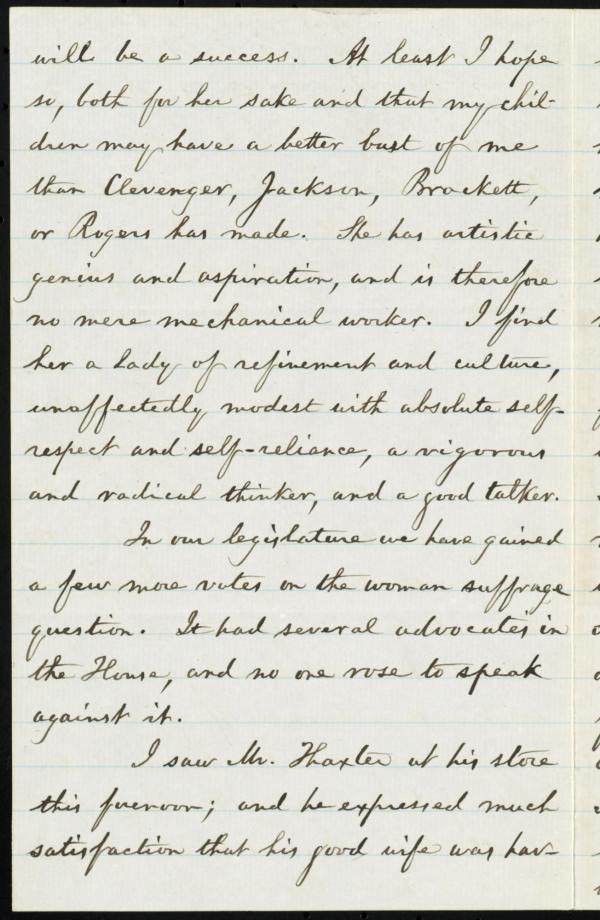 will be a success. At least I hope
so, both for her sake and that my chil-
dren may have a better bust of me
than Clevenger, Jackson, Brackett,
or Rogers has made. She has artistic
genius and aspiration, and is therefore
no mere mechanical worker. I find
her a lady of refinement and culture,
unaffectedly modest with absolute self-
respect and self-reliance, a vigorous
and radical thinker, and a good talker.
In our legislature we have gained
a few more votes on the woman suffrage
question. It had several advocates in
the House, and no one rose to speak
against it.
I saw Mr. Thaxter at his store
this forenoon; and he expressed much
satisfaction that his good wife was hav-